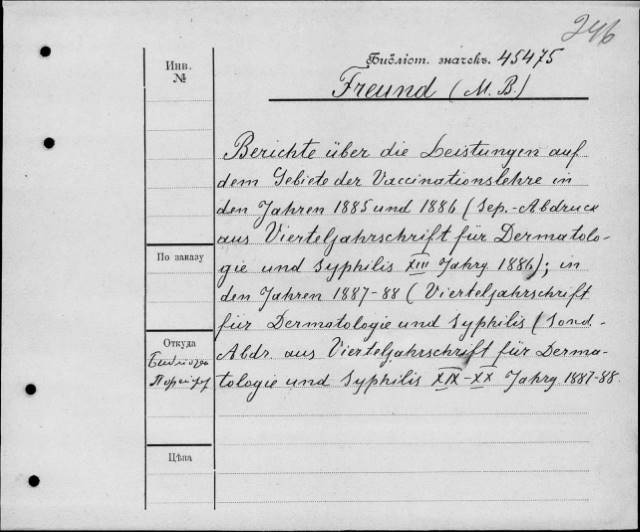 246
Библіот. значекъ. 45475
Freund (M. B.)
Инв.
№
Berichte über die Leistungen auf
dem Gebiete der Vaccinationslehre in
den Jahren 1885 und 1886 (Sep.-Abdruck
aus Vierteljahrschrift für Dermatolo-
gie und Syphilis XIII Jahrg 1886); in
den Jahren 1887-88 (Vierteljahrschrift
für Dermatologie und Syphilis (Sond.-
Abdr. aus Vierteljahrschrift für Derma-
tologie und Syphilis XIX-XX Jahrg 1887-88.
По заказу
Откуда
Цѣна